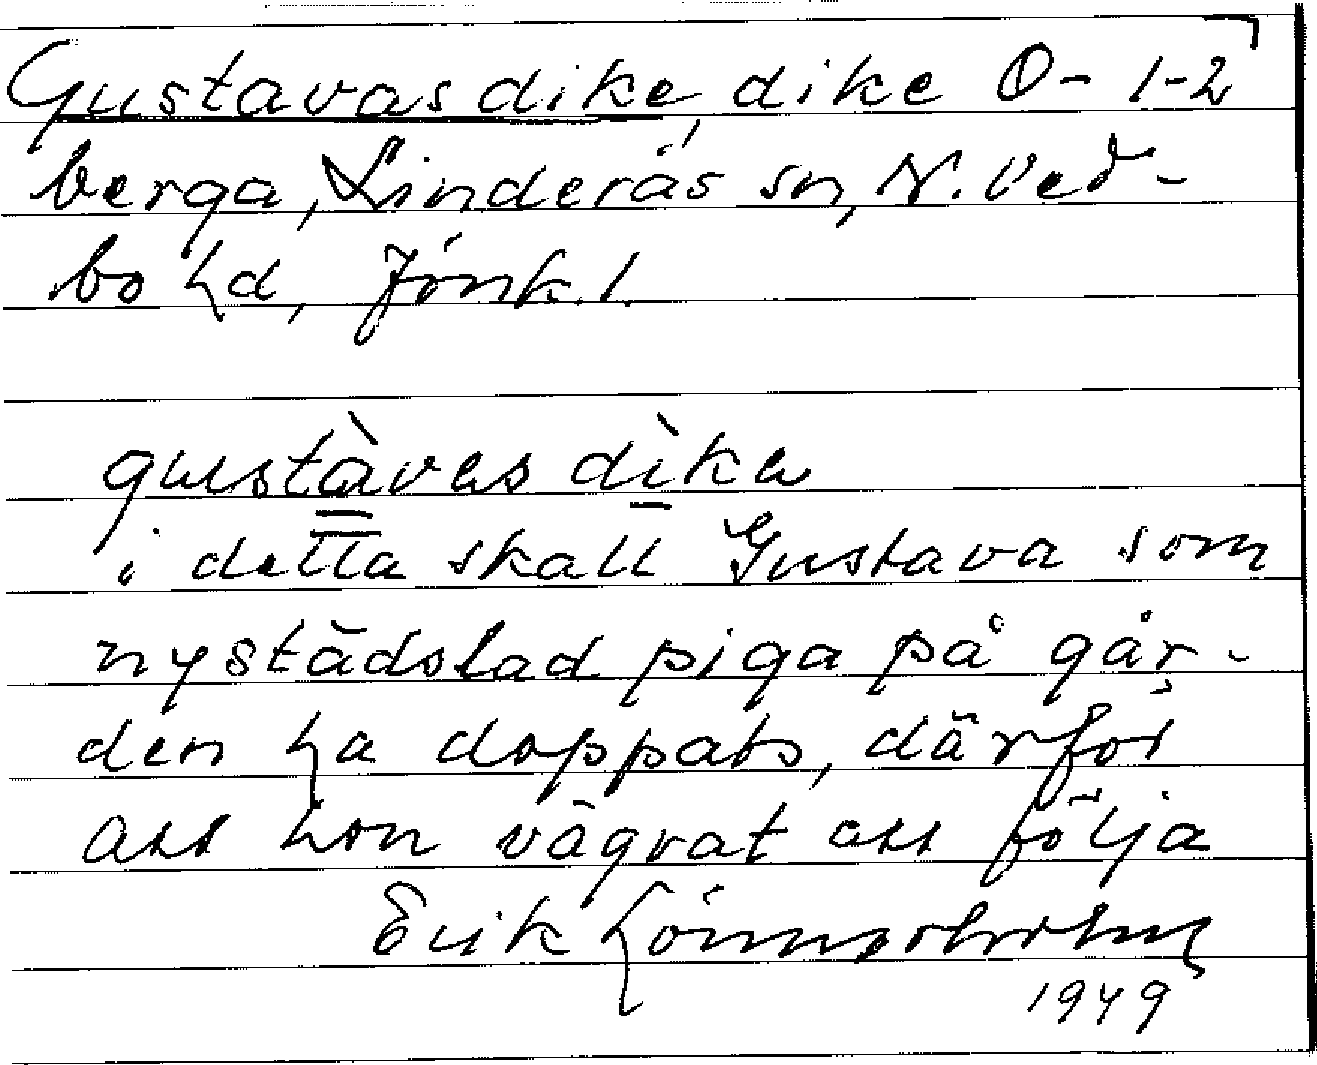 Gustavas dike, dike O- 1-2
berga, Linderås sn, N. Ved-
bo hd, Jönk. l.
gustàvas dìke
i detta skall Gustava som
nystädslad piga på går-
den ha doppats, därför
att hon vägrat att följa
Erik
1949